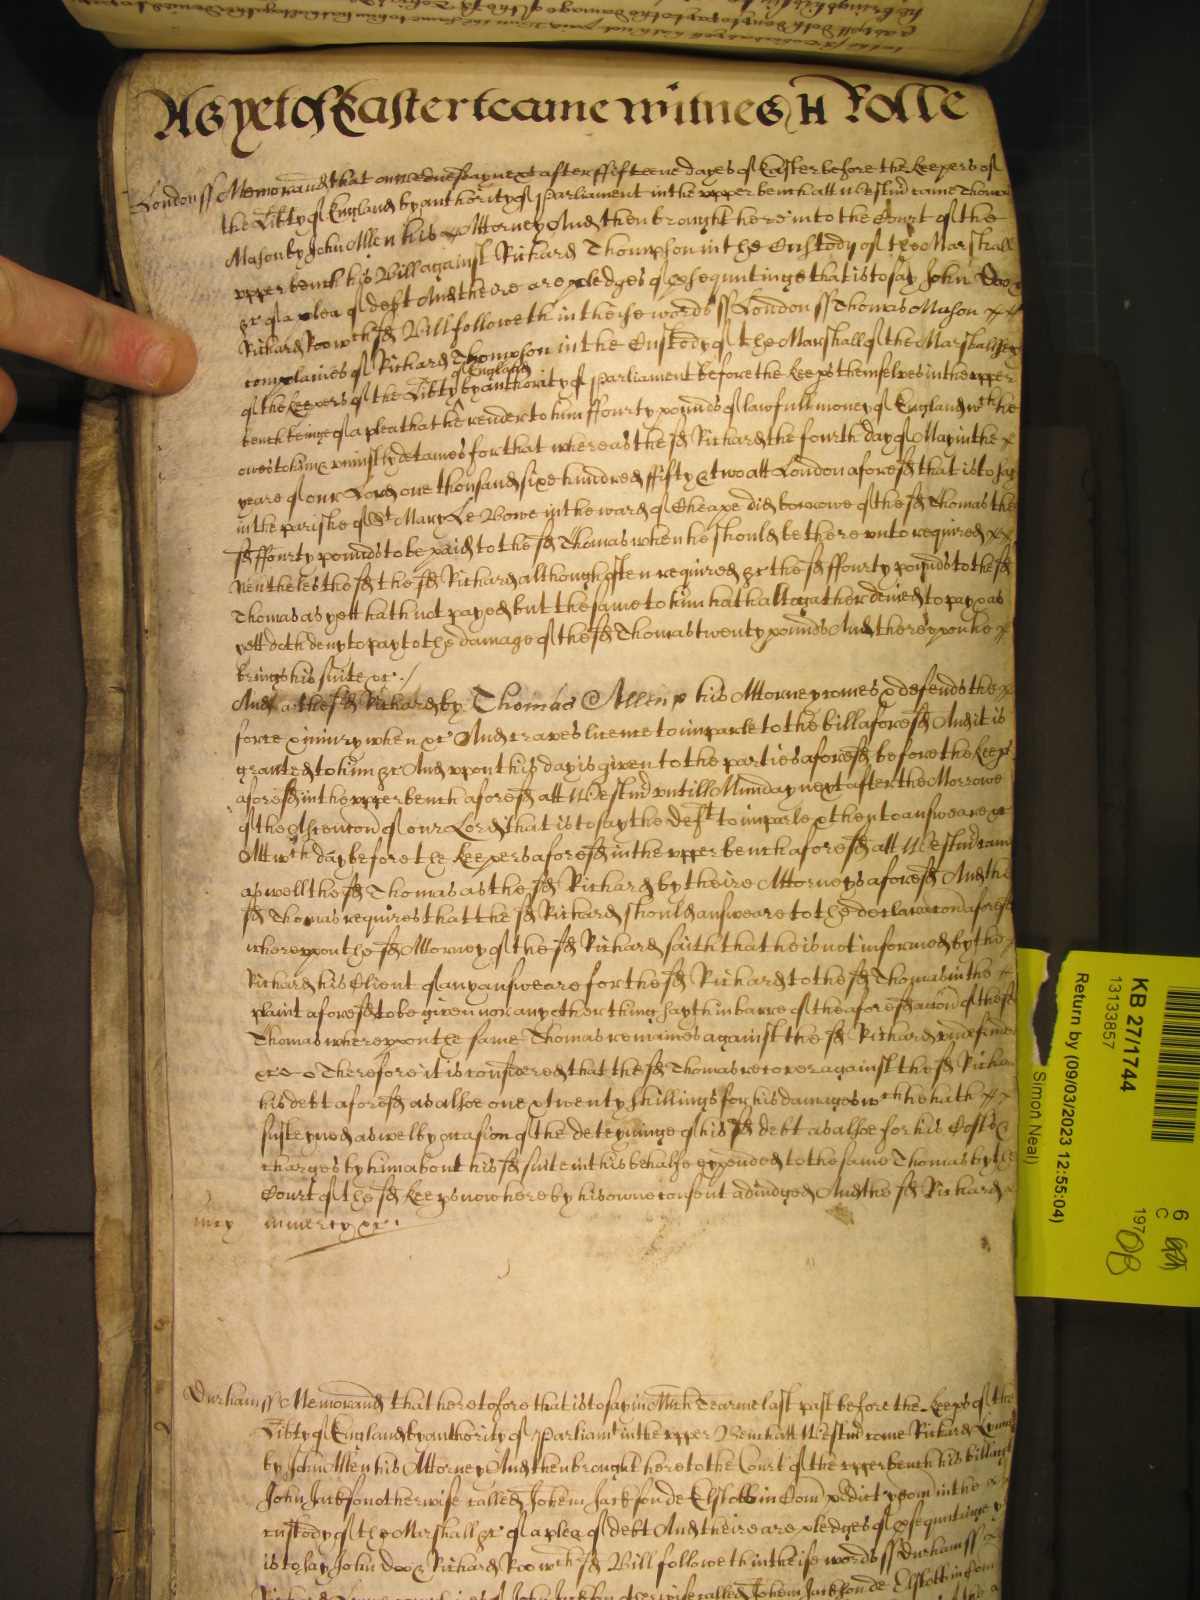 As yet of Easter tearme witnes H Rolle
London ss Memorand that on wednesday next after ffifteene dayes of Easter before the Keepers of
the Libty of England by authority of Parliament in the upper bench att Westmr came Thomas
Mason by John Allen his Attorney And then brought here into the Court of the
upper bench his Bill against Richard Thompson in the Custody of the Marshall
&c of a plea of debt And there are pledges of psequutinge that is to say John Doo &
Richard Roo wch sd Bill followeth in theise words ss London ss Thomas Mason
complaines of Richard Thompson in the Custody of the Marshall of the Marshallsey
of the Keepers of the Libty of England by authority of Parliament before the Keeps themselves in the upper
bench beinge of a plea that he render to him ffourty pounds of lawfull money of England wch he
owes to him & uniustly detaines for that whereas the sd Richard the fourth day of May in the
yeare of our Lord one thousand sixe hundred ffifty & two att London aforesd that is to say
in the parishe of St Mary Le Bowe in the ward of Cheape did borrowe of the sd Thomas the
sd ffourty pounds to be paid to the sd Thomas when he should be there unto required
Nevertheles the sd the sd Richard although often required &c the sd ffourty pounds to the sd
Thomas as yett hath not payed but the same to him hath altogather denied to pay & as
yett doth deny to pay to the damage of the sd Thomas twenty pounds And thereupon he
brings his suite &c ./
And as the sd Richard by Thomas Allen his Attorney comes & defends the
force & iniury when &c And craves licence to imparle to the bill aforesd And it is
granted to him &c And upon this day is given to the parties aforesd before the Keeps
aforesd in the upper bench aforesd att Westmr untill Munday next after the Morrowe
of the Ascencon of our Lord that is to say the Deft to imparle & then to answeare &c
Att wch day before the Keepers aforesd in the upper bench aforesd att Westmr came
aswell the sd Thomas as the sd Richard by theire Attorneys aforesd And the
sd Thomas requires that the sd Richard should answeare to the declaracon aforesd
whereupon the sd Attorney of the sd Richard saith that he is not informed by the
Richard his Client of any answeare for the sd Richard to the sd Thomas in the
plaint aforesd to be given nor any other thing sayth in barre of the aforesd accon of the sd
Thomas whereupon the same Thomas remaines against the sd Richard undefended
&c Therefore it is considered that the sd Thomas recover against the sd Richard
his debt aforesd as alsoe one & twenty shillings for his damages wch he hath
susteyned aswel by occasion of the deteyninge of his sd debt as alsoe for his Costs &
charges by him about his sd suite in his behalfe expended to the same Thomas by the
Court of the sd Keeps now here by his owne consent adiudged And the sd Richard
mcy in mercy &c.
Durham ss Memorand that heretofore that is to say in Mich Tearme last past before the Keeps of the
Libty of England by authority of Parliamt in the upper Bench att Westmr came Richard
by John Allen his Attorney And then brought here to the Court of the upper bench his bill against
John Jackson otherwise called Johem Jackson de in Com pdict yeom in the
custody of the Marshall &c of a plea of debt And theire are pledges of psequutinge
is to say John Doo & Richard Roo wch sd Bill followeth in theise words ss Durham ss
John Jackson otherwise called Johem Jackson de in Com
KB 27/1744
13133857
Return by (09/03/2023 12:55:04)
Simon Neal)
6
C
197